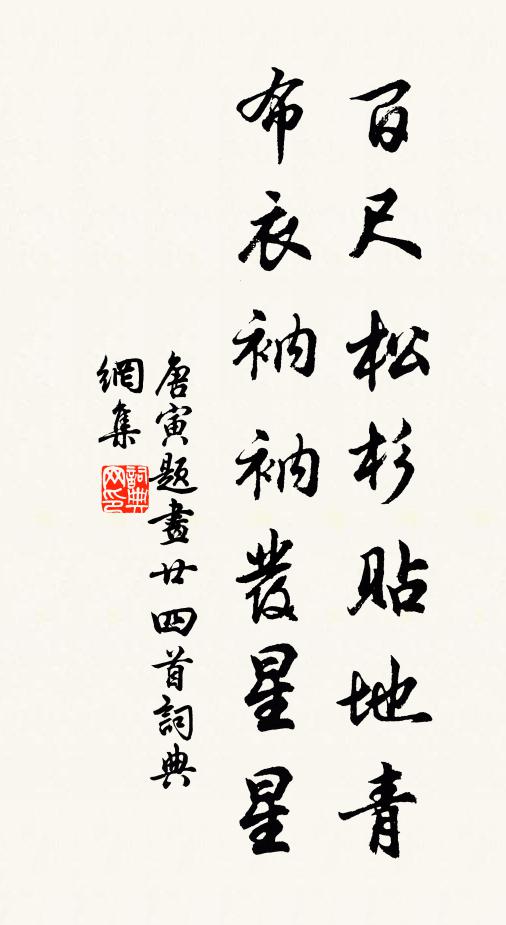 百尺松杉貼地青
布衣衲衲發星星
唐寅題畫廿四首詞典
網集
詞典網印